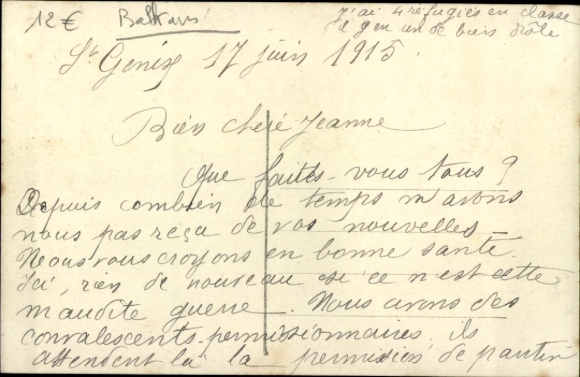 12€ Balkans
J'ai 4 réfugiés en classe
il y en un de bien drôle
St Genix 17 juin 1915
Bien cheré Jeanne
Que faites-vous tous ?
Depuis combien de temps n'avons
nous pas reça de vos nouvelles -
Nous vous croyons en bonne santé.
Ici, rien de nouveau si ce n'est cette
maudite guerre. Nous avons des
convalescents-permissionnaires, ils
attendent là la permission de partir